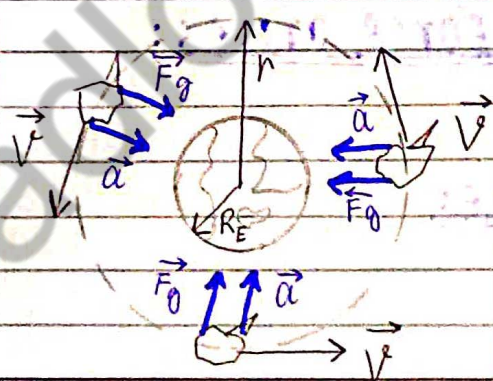 F⃗g
r
V⃗
a⃗
a⃗
V⃗
F⃗g
RE
F⃗g
a⃗
V⃗